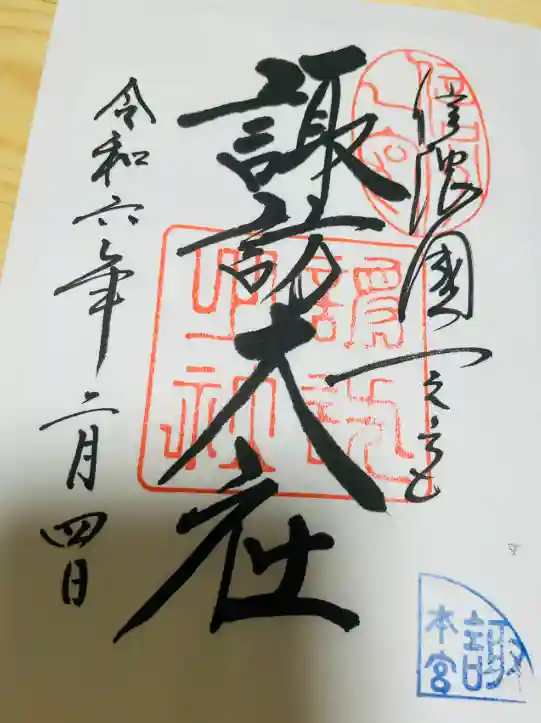 信濃國一之宮
諏訪大社
令和六年二月四日
本宮
諏